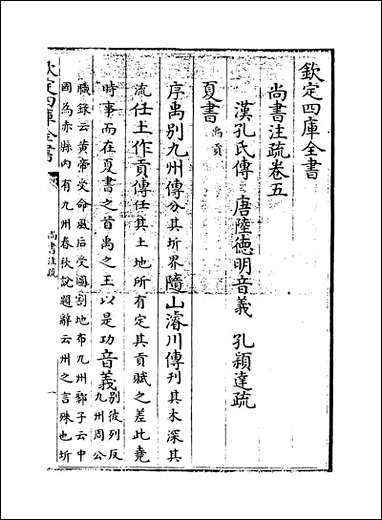 欽定四庫全書
尚書注疏卷五
漢孔氏傳 唐陸徳明音義 孔穎達疏
夏書
禹貢
序禹别九州傳分其圻界隨山濬川傳刊其木深其
流任土作貢傳任其土地所有定其貢賦之差此堯
時事而在夏書之首禹之王以是功音義别彼列反
九州周公
職録云黄帝受命風后受圖割地布九州鄒子云中
國為赤縣内有九州春秋説題辭云州之言殊也圻
欽定四庫全書
尚書注疏
一